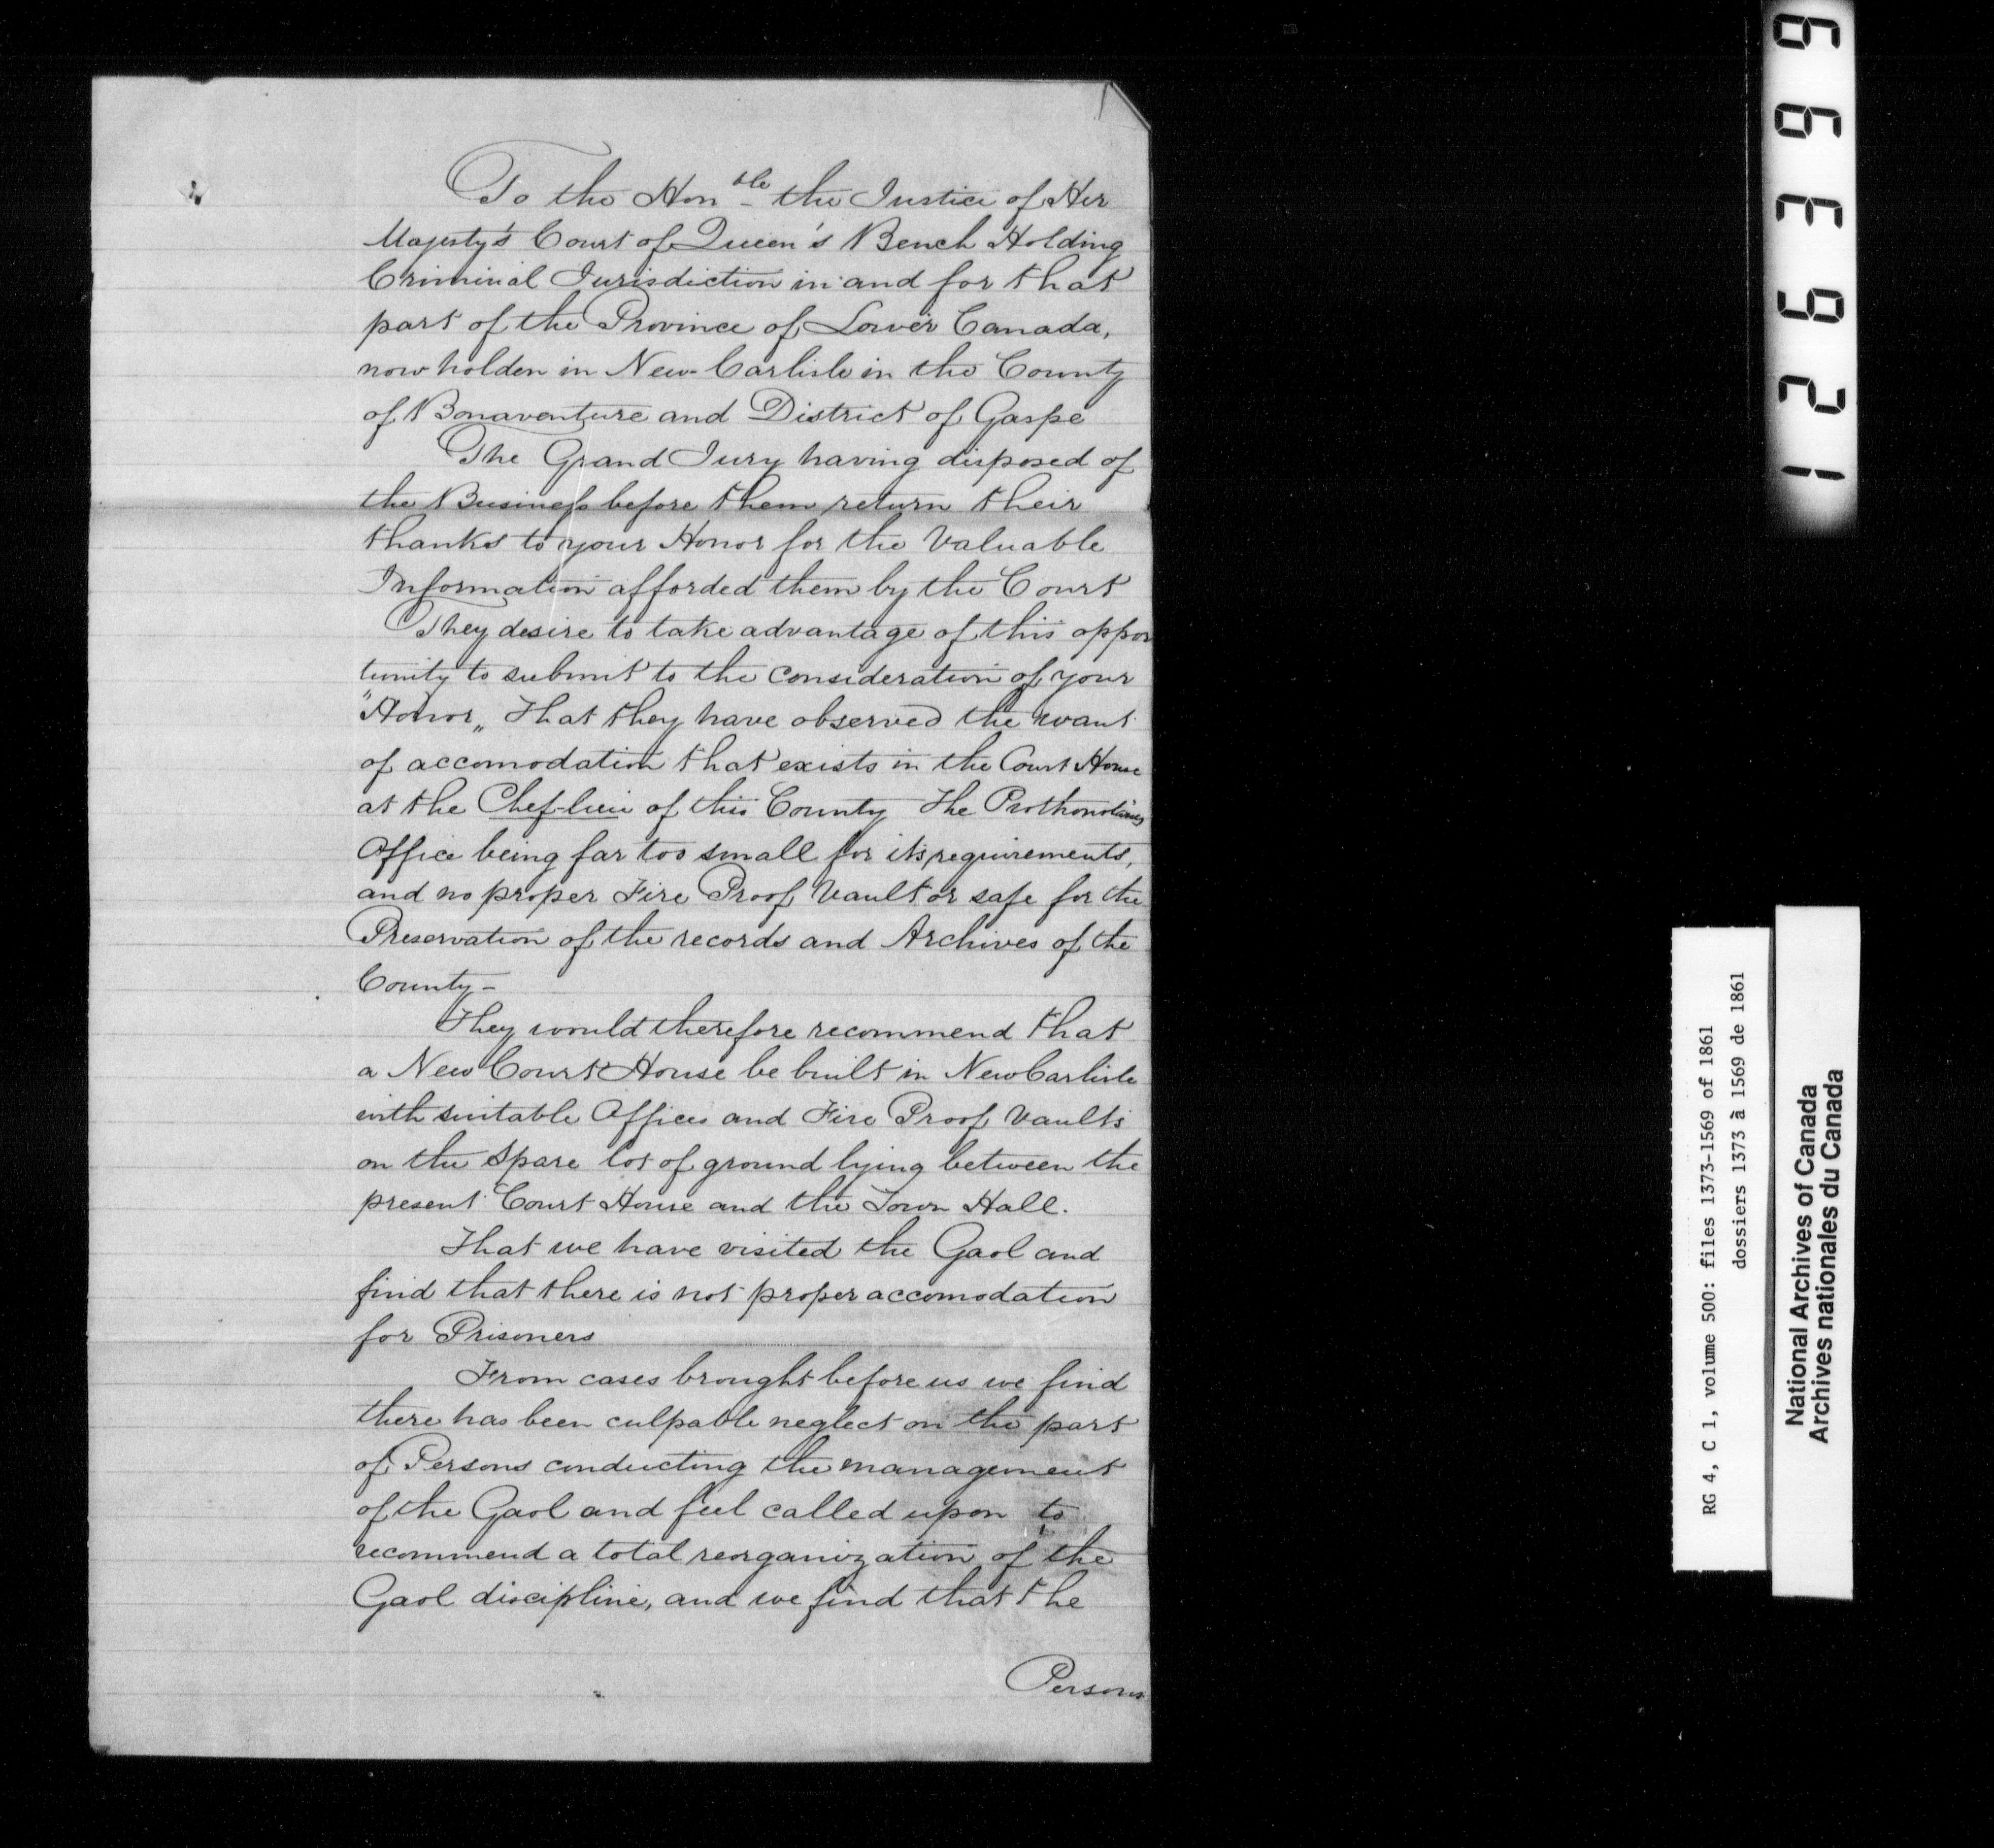 To the Honble the Justice of Her
Majesty's Court of Queen's Bench Holding
Criminal Jurisdiction in and for that
part of the Province of Lower Canada,
now holden in New-Carlisle in the County
of Bonaventure and District of Gaspe
The Grand Jury having disposed of
the Business before them return their
thanks to your Honor for the Valuable
Information afforded them by the Court
They desire to take advantage of this oppor
tunity to submit to the consideration of your
"Honor„ That they have observed the want
of accomodation that exists in the Court House
at the Chef-lieu of this County The Prothonotaries
Office being far too small for its requirements,
and no proper Fire Proof Vault or safe for the
Preservation of the records and Archives of the
County-
They would therefore recommend that
a New Court House be built in New Carlisle
with suitable Offices and Fire Proof Vaults
on the spare lot of ground lying between the
present Court House and the Town Hall.
That we have visited the Gaol and
find that there is not proper accomodation
for Prisoners
From cases brought before us we find
there has been culpable neglect on the part
of Persons conducting the management
of the Gaol and feel called upon to
recommend a total reorganization of the
Gaol discipline, and we find that the
Persons
126399
RG 4, C 1, volume 500: files 1373-1569 of 1861
dossiers 1373 à 1569 de 1861
National Archives of Canada
Archives nationales du Canada